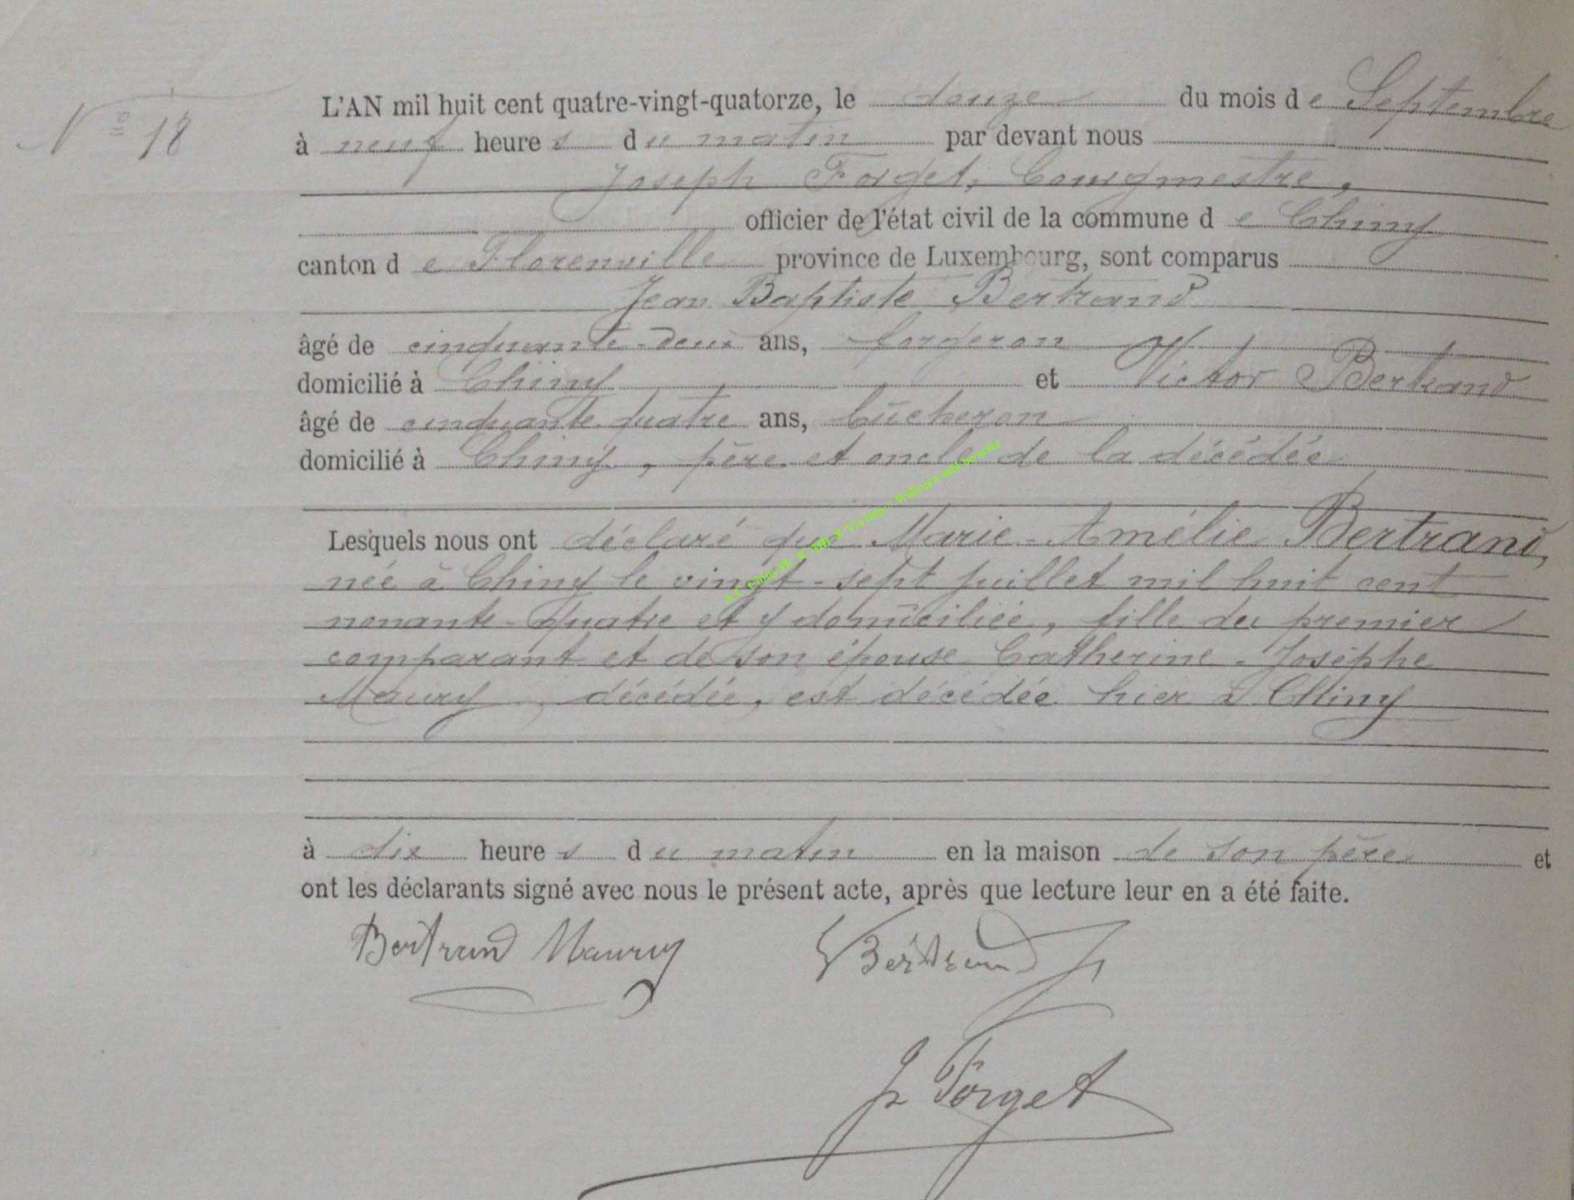 N° 18
L'AN mil huit cent quatre-vingt-quatorze, le douze du mois de Septembre
à neuf heures du matin par devant nous
Joseph Forget, bourgmestre,
officier de l'état civil de la commune de Chiny
canton de Florenville province de Luxembourg, sont comparus
Jean Baptiste Bertrand
âgé de cinquante-deux ans, forgeron
domicilié à Chiny et Victor Bertrand
âgé de cinquante-quatre ans, bûcheron
domicilié à Chiny, père et oncle de la décédée
Lesquels nous ont déclaré que Marie-Amélie Bertrand,
née à Chiny le vingt-sept juillet mil huit cent
nonante-quatre et y domiciliée, fille du premier
comparant et de son épouse Catherine-Josèphe
Maury décédée, est décédée hier à Chiny
à dix heures du matin en la maison de son père et
ont les déclarants signé avec nous le présent acte, après que lecture leur en a été faite.
Bertrand Maury Bertrand
J Forget